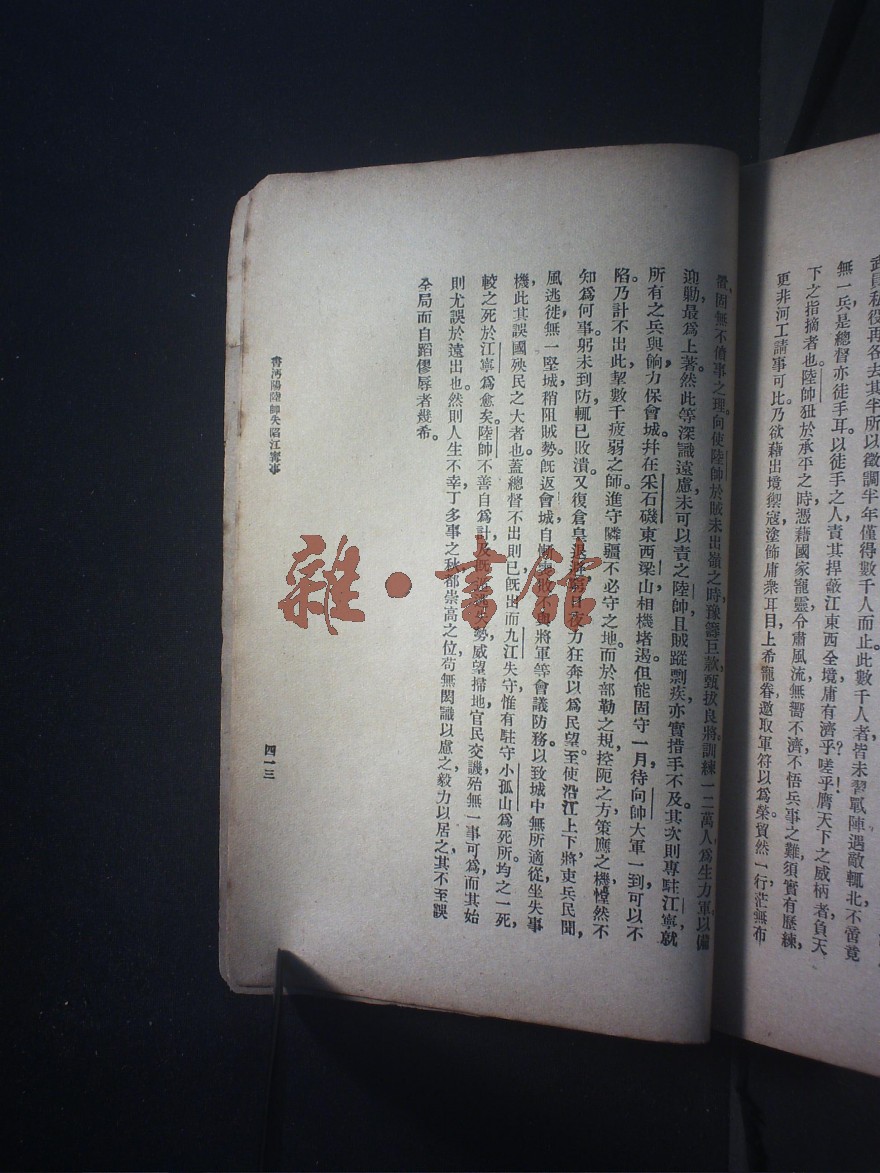 武員私役再各去其半所以徵調半年僅得數千人而止此數千人者皆未習戰陣遇敵輒北不啻竟
無一兵是總督亦徒手耳以徒手之人責其捍蔽江東西全境庸有濟乎?嗟乎!膺天下之威柄者負天
下之指摘者也。陸帥狃於承平之時憑藉國家寵靈令肅風流無嚮不濟不悟兵事之難須實有歷練,
更非河工請事可比乃欲藉出境禦寇塗飾庸衆耳目上希寵眷邀取軍符以爲榮貿然一行茫無布
置,固無不僨事之理。向使陸帥於賊未出嶺之時豫籌巨款甄拔良將訓練一二萬人爲生力軍以備
迎勦,最爲上著。然此等深識遠慮未可以責之陸帥且賊蹤剽疾亦實措手不及。其次則專駐江寧就
所有之兵與餉力保會城,幷在采石磯東西梁山相機堵遏但能固守一月待向帥大軍一到可以不
陷。乃計不出此挈數千疲弱之師進守隣疆不必守之地。而於部勒之規控阨之方策應之機,懵然不
知爲何事躬未到防輒已敗潰。又復倉皇退
日夜力狂奔以爲民望至使沿江上下將吏兵民聞
風逃徙,無一堅城稍阻賊勢。旣返會城自慚
與將軍等會議防務以致城中無所適從坐失事
機此其誤國殃民之大者也。蓋總督不出則已旣出而九江失守惟有駐守小孤山爲死所。均之一死,
較之死於江寧爲愈矣。陸帥不善自爲計及旣
失勢威望掃地官民交譏殆無一事可爲而其始
則尤誤於遠出也。然則人生不幸丁多事之秋都崇高之位苟無閎識以慮之毅力以居之其不至誤
全局而自蹈僇辱者幾希。
書沔陽陸帥失陷江寧事
四一三
雜·書館